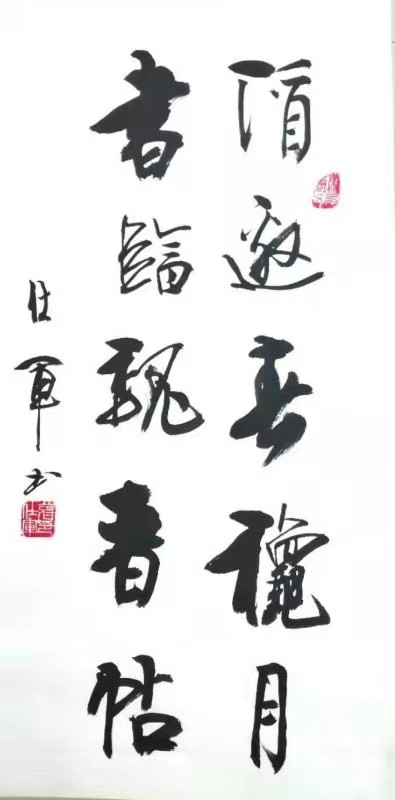 酒邀春龝月
書臨魏晉帖
仕軍书